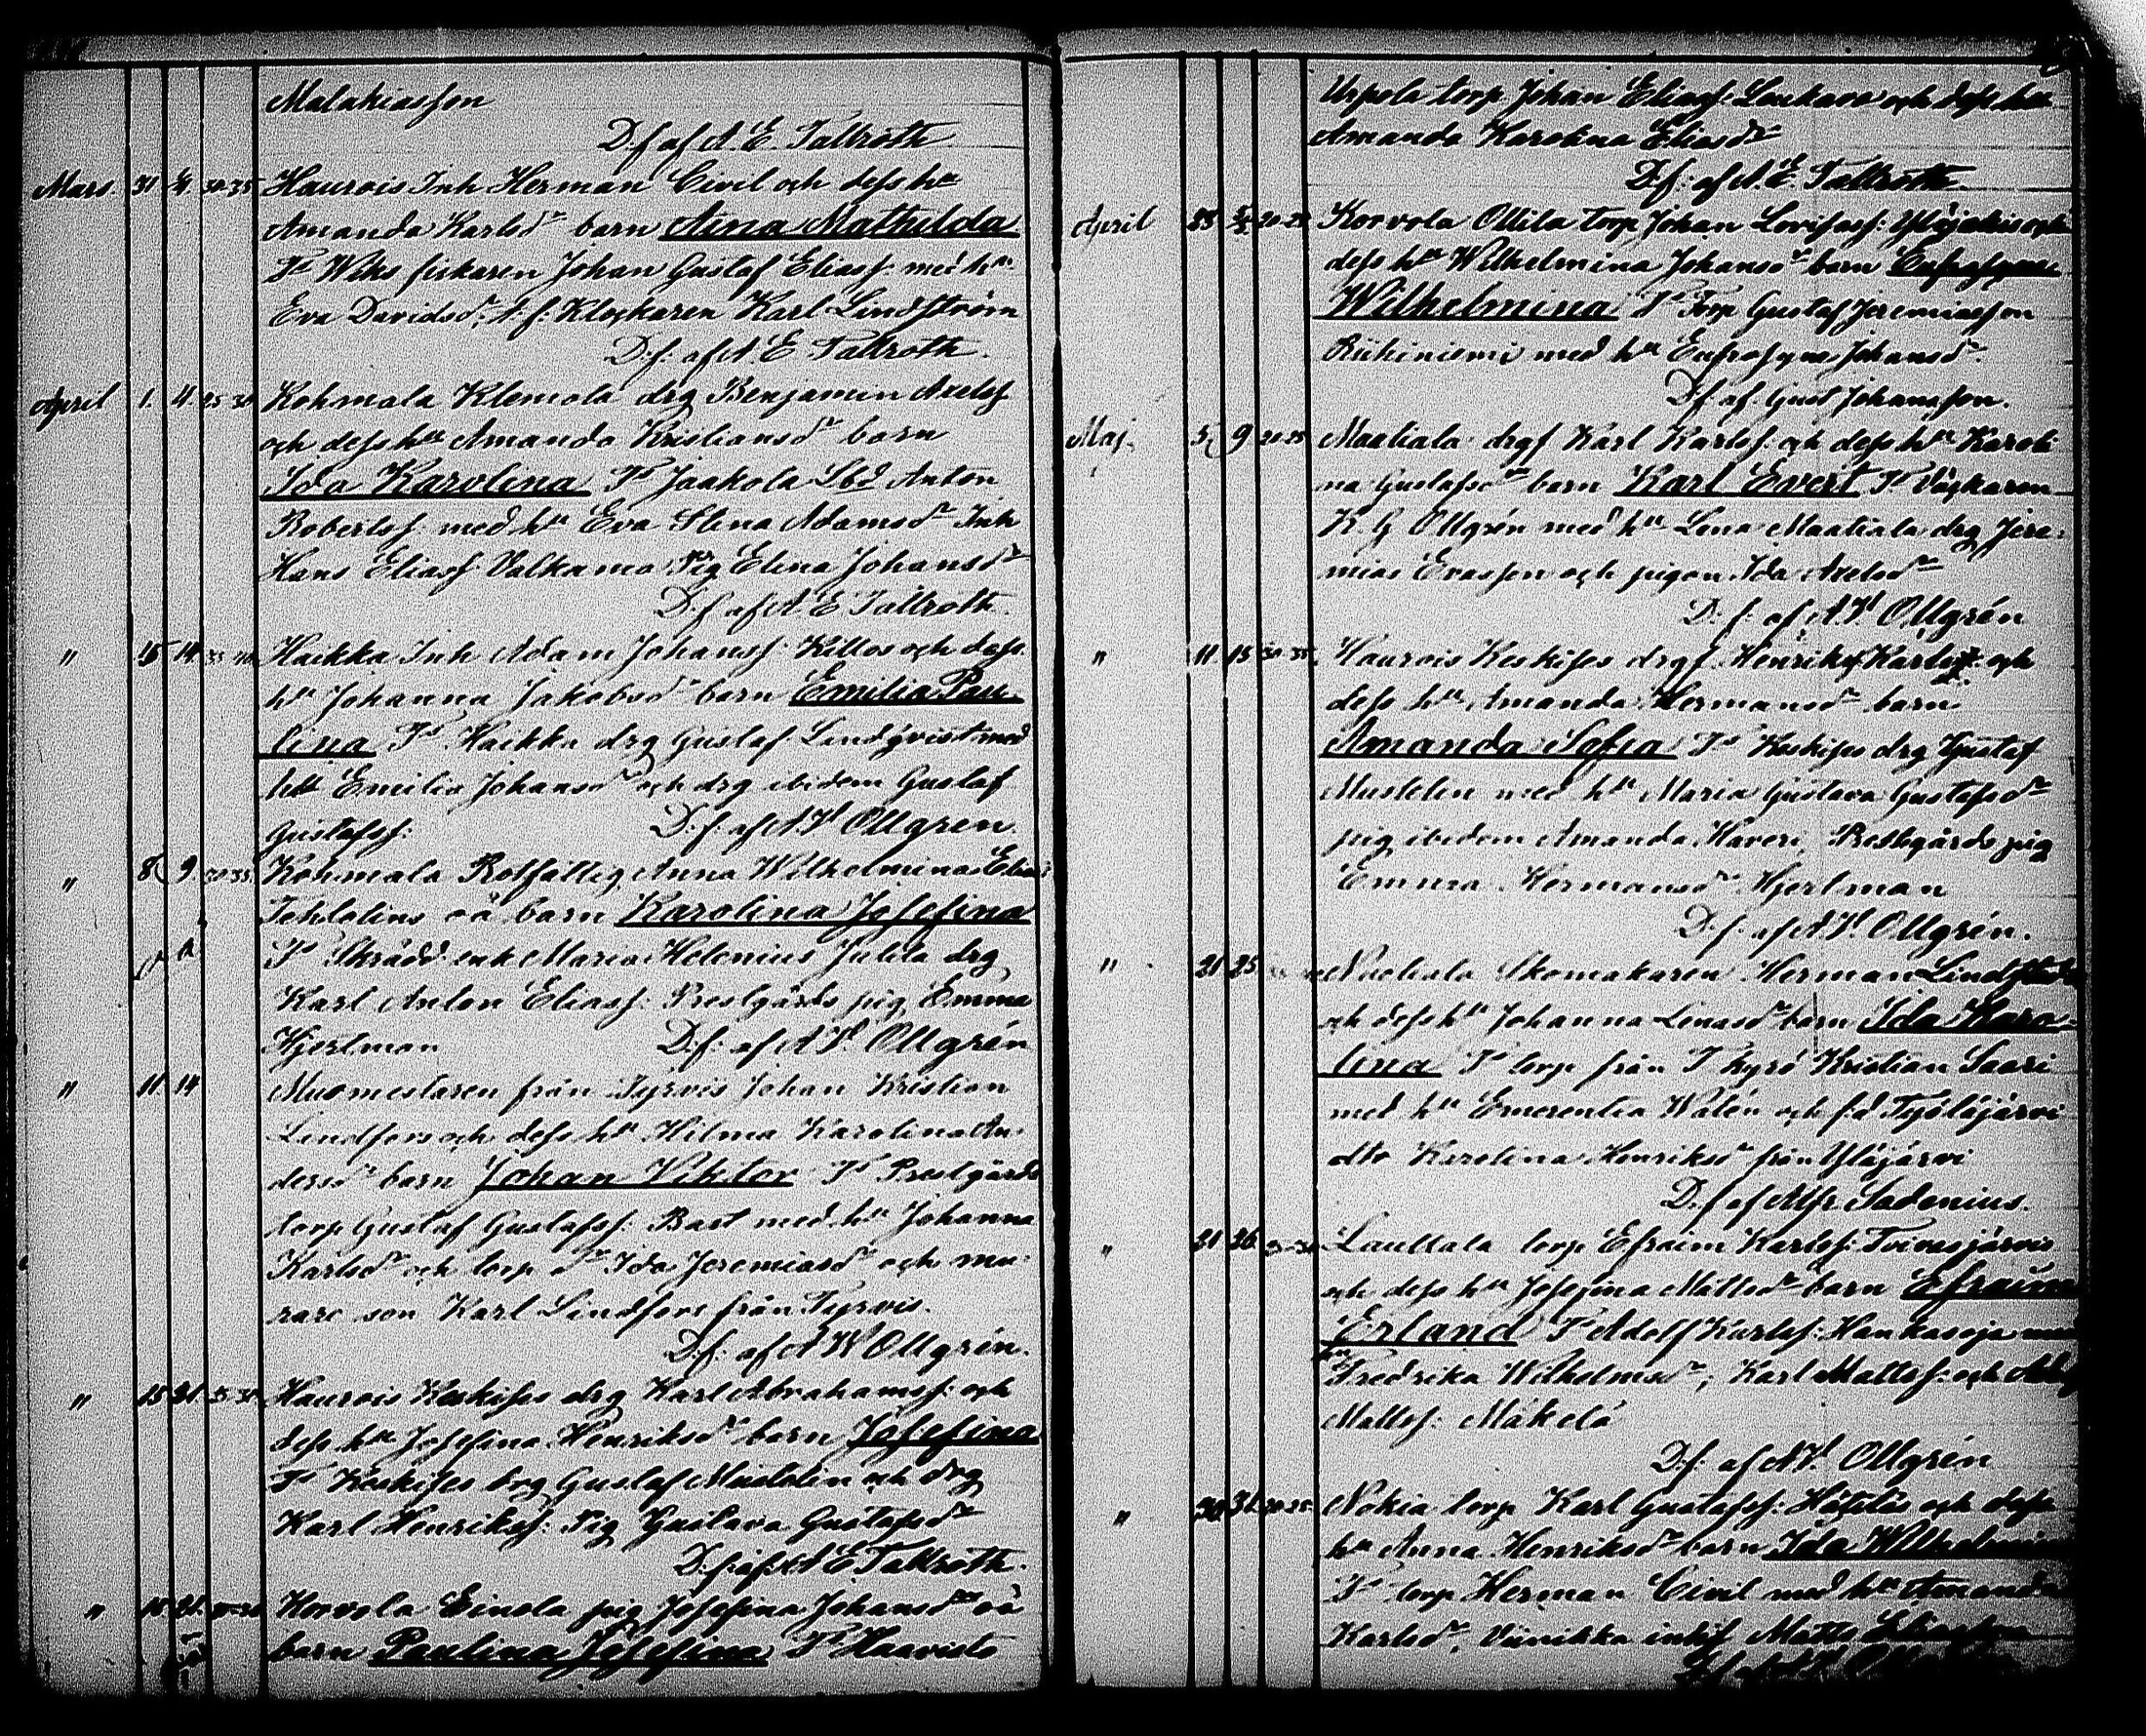 Malakiasson
D:f af A. E. Tallroth
Mars 31 30-35 Haurois Inh Herman Civil och dess hu
Amanda Karlsdr barn Aina Mathilda
Ts Wiks fiskaren Johan Gustaf Eliass: med hu
Eva Davidsdr, Klockaren Karl Lindström
D:f: af A. E Tallroth.
April 1. 4. 25-30 Kohmala Klemola drg Benjamin Axelss
och dess hu Amanda Kristiansdr barn
Ida Karolina Ts Jaakola Sbd Anton
Robertss: med hu Eva Stina Adamsdr Inh
Hans Eliass: Valkama Pig Elina Johansdr
D:f af A. E Tallroth.
" 14. 35-40 Haikka Inh Adam Johanss: Killos och dess
hu Johanna Jakobsdr barn Emilia Pau
lina Ts Haikka drg Gustaf Lindqvist med
hu Emilia Johansdr och drg ibidem Gustaf
Gustafss: D:f: af A W Ollgren.
" 8 9. 30-35. Kohmala Rotfattig Anna Wilhelmina
oä barn Karolina Josefina
Ts Skrädd enk Maria Helenius Julila drg
Karl Anton Eliass: Prestgårds pig Emma
Hjertman D:f: af A W. Ollgrén
" 11 14 Murmestaren från Tyrvis Johan Kristian
Lindfors och dess hu Hilma Karolina An
dersdr barn Johan Viktor Ts Prestgårds
torp Gustaf Gustafss: Bast med hu Johanna
Karlsdr och torp dr Ida Jeremiasdr och mu
rare son Karl Lindfors från Tyrvis.
D:f: af A W Ollgrén.
" 15 21. 25-30 Haurois Keskises drg Karl Abrahamss: och
dess hu Josefina Henriksdr barn Josefina
Ts Keskises drg Gustaf Mustelin och drg
Karl Henrikss: Pig Gustava Gustafsdr
D:f: af A E Tallroth.
" 21. Korvola Einola pig Josefina Johansdr oä
barn Paulina Josefina Ts Haavisto
Urpola torp Johan Eliass: och dess hu
Amanda Karolina Eliasdr
D:f: af A. E. Tallroth.
April 20-25 Korvola Ollila torp Johan Lovisass: Ylöjakis och
dess hu Wilhelmina Johansdr barn Eufrosyne
Wilhelmina Ts Torp Gustaf Jeremiasson
Riihiniemi med hu Eufrosyne Johansdr.
D:f af Gust Johansson.
Maj. 5 9 20-25 Maatiala drg Karl Karlss: och dess hu Karoli
na Gustafsdr barn Karl Evert Ts Väckaren
K G Ollgrén med hu Lena Maatiala drg Jere
mias Evasson och pigan Ida Axelsdr
D: f: af A W Ollgrén
" 11. 15 30-35. Haurois Keskises drg Henrik Karlss: och
dess hu Amanda Hermansdr barn
Amanda Sofia Ts Keskises drg Gustaf
Mustelin med hu Maria Gustava Gustafsdr
pig ibidem Amanda Haveri, Prestgårds pig
Emma Hermansdr Hjertman
D: f. af A W. Ollgrén.
" 21 25 Skomakaren Herman
och dess hu Johanna Lenasdr barn Ida Karo
lina Ts torp från T kyrö Kristian Saari
med hu Emerentia Walén och
Karolina Henriksdr från Ylöjärvi
D:f af Alfr Sadenius.
" 21 26. Lauttala torp Efraim Karlss:
och dess hu Josefina Mattsdr barn Efraim
Erland Ts Adolf Karlss: Haukaoja med
hu Fredrika Wilhelmsdr, Karl Mattss: och
Mattss: Mäkelä
D:f: af A W. Ollgrén
" 31. 30-35. Nokia torp Karl Gustafss: och dess
hu Anna Henriksdr barn Ida Wilhelmina
Ts torp Herman Civil med hu Amanda
Karlsdr, Viinikka Matts Eliasson